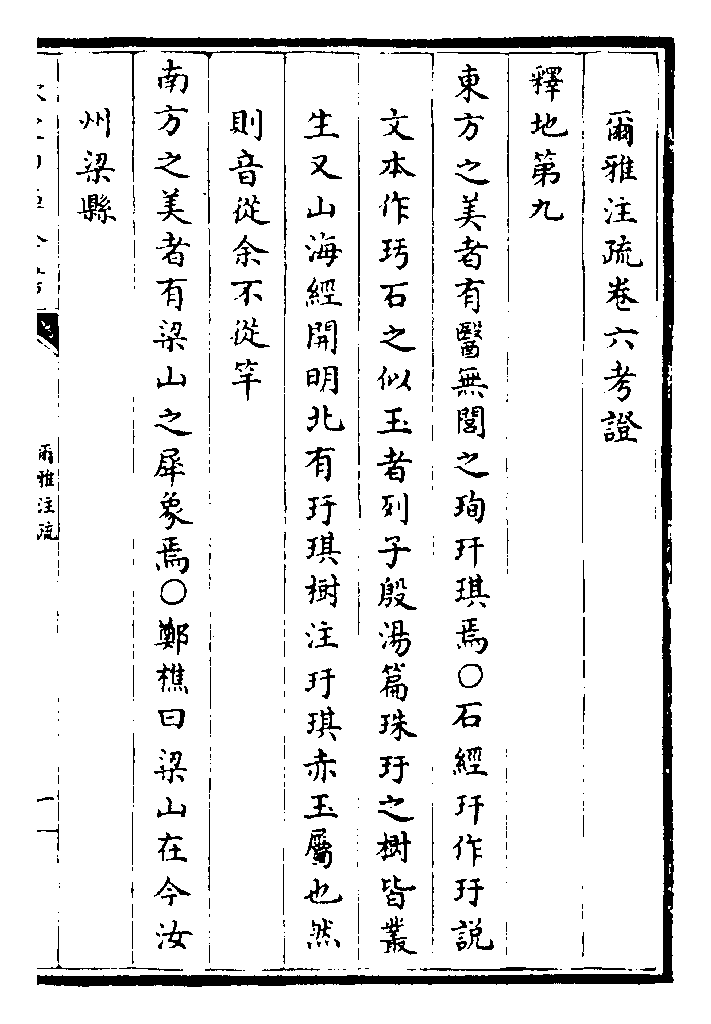 爾雅注疏卷六考證
釋地第九
東方之美者有醫無閭之珣玗琪焉○石經玗作玗說
文本作玗石之似玉者列子殷湯篇珠玗之樹皆叢
生又山海經開明北有玗琪樹注玗琪赤玉屬也然
則音從余不從竿
南方之美者有梁山之犀象焉○鄭樵曰梁山在今汝
州梁縣
爾雅注疏
一